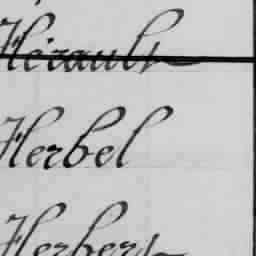 Hérault
Herbel
Herbert